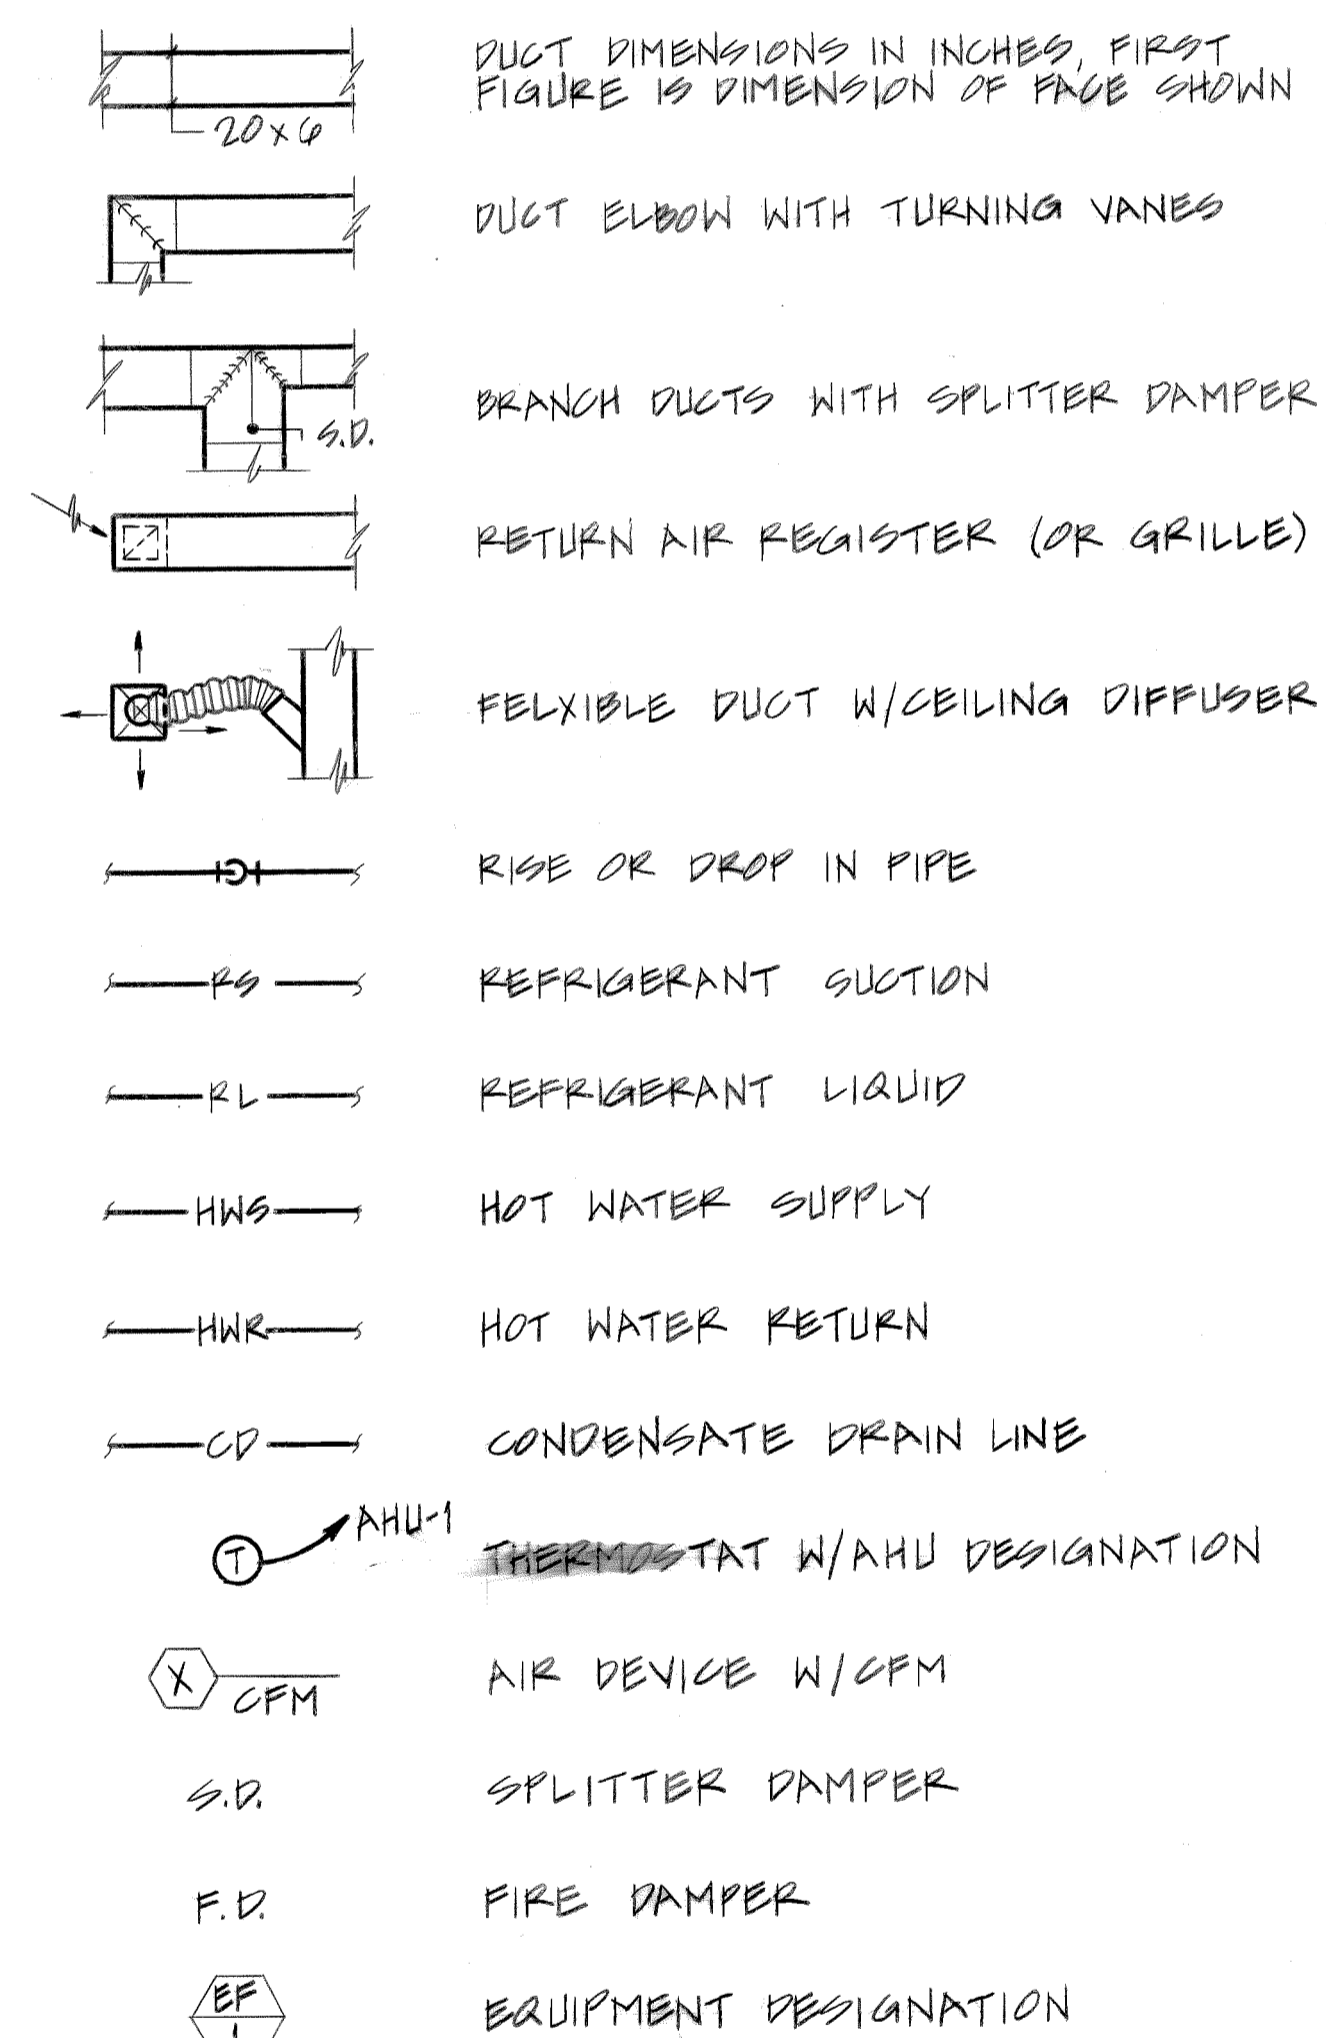 DUCT DIMENSIONS IN INCHES, FIRST
FIGURE IS DIMENSION OF FACE SHOWN
20 x 6
DUCT ELBOW WITH TURNING VANES
BRANCH DUCTS WITH SPLITTER DAMPER
S.D.
RETURN AIR REGISTER (OR GRILLE)
FELXIBLE DUCT W/CEILING DIFFUSER
RISE OR DROP IN PIPE
RS REFRIGERANT SUCTION
RL REFRIGERANT LIQUID
HWS HOT WATER SUPPLY
HWR HOT WATER RETURN
CD CONDENSATE DRAIN LINE
AHU-1
T THERMOSTAT W/AHU DESIGNATION
X AIR DEVICE W/CFM
CFM
S.D. SPLITTER DAMPER
F.D. FIRE DAMPER
EF EQUIPMENT DESIGNATION